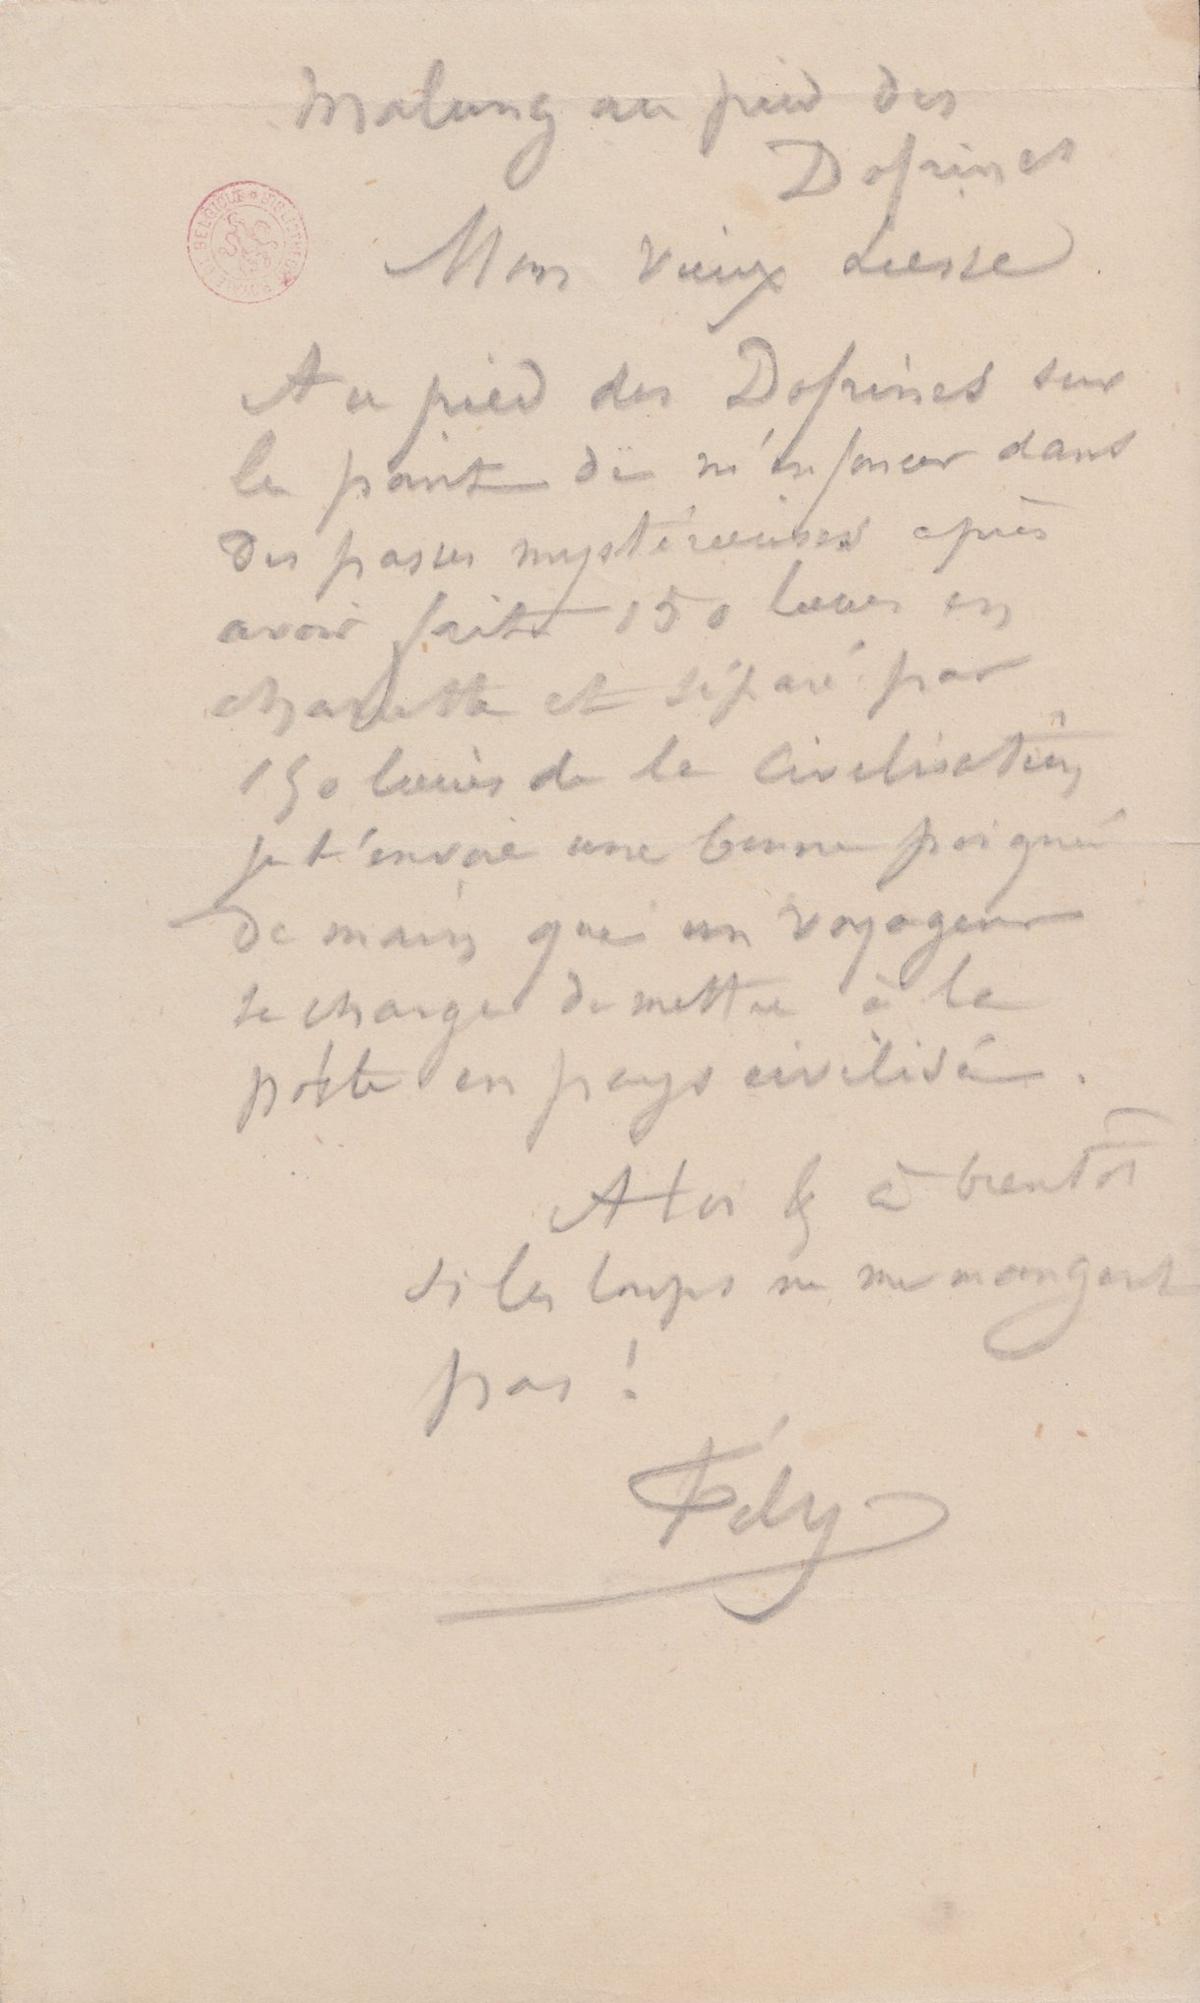 Malung au pied des
Dofrines
Mon vieux Liesse
BIBLIOTHEQUE ROYALE DE BELGIQUE
Au pied des Dofrines sur
le point de m'enfoncer dans
des passes mystérieuses après
avoir fait 150 lieues en
charette et séparé par
150 lieues de la civilisation
je t'envoie une bonne poignée
de main que un voyageur
se charge de mettre à la
poste en pays civilisé.
A toi & à bientôt
si les loups ne me mangent
pas !
Fély